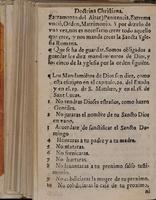 Doctrina Christiana.
Sacramento del Altar, Penitencia, Extrema
uncio, Orden, Matrimonio. Y por dezirlo de
una vez, nos es necessario creer todo aquello
que cree, y nos manda creer la Sancta Igle
sia Romana.
Que se ha de guardar. Somos obligados a
guardar los diez mandamientos de Dios, y
los cinco de la yglesia por la orden siguiete.
Los Mandamientos de Dios son diez, como
esta escripto en el capitulo, 20. del Exodo
y en el .19. de S. Matheo, y en el .18. de
Sant Lucas.
1 No tendras Dioses estraños, como hazen
Gentiles.
2 No juraras el nombre de tu Sancto Dios
en vano.
3 Acuerdate de sanctificar el Sancto Do-
mingo
4 Honraras a tu padre y a tu madre.
5 No mataras.
6 No fornicaras.
7 No hurtaras.
8 No levantaras a tu proximo falso testi-
monio.
9 No cobdiciaras la muger de tu proximo.
10 No cobdiciaras la casa de tu proximo,